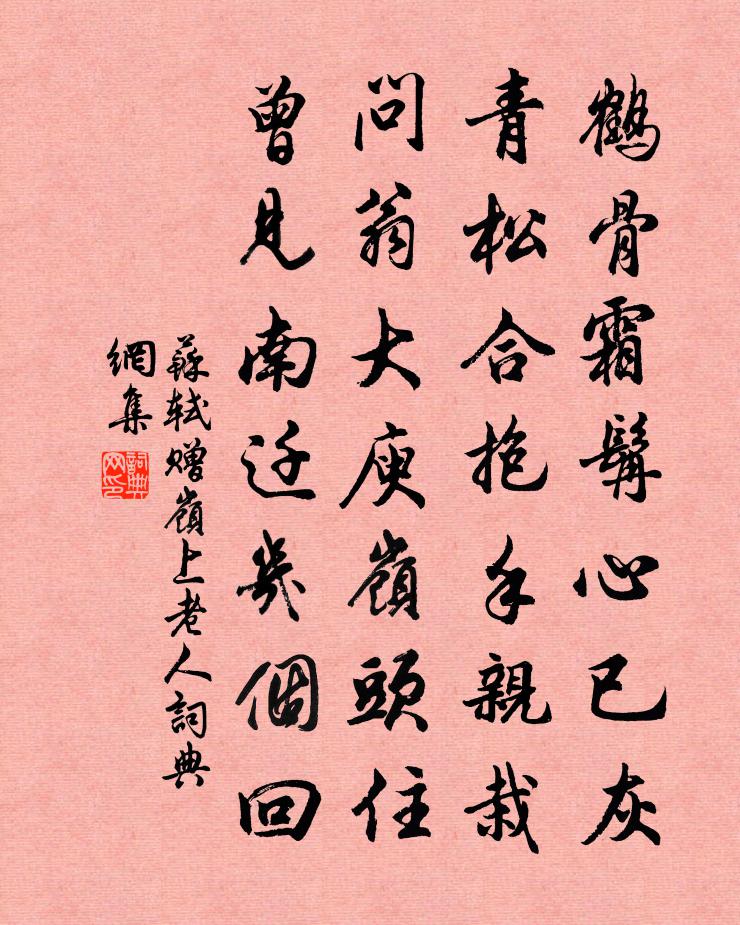 鶴骨霜髯心已灰
青松合抱手親栽
問翁大庾嶺頭住
曾見南迁幾個回
蘇軾贈嶺上老人詞典
網集
詞典
网印